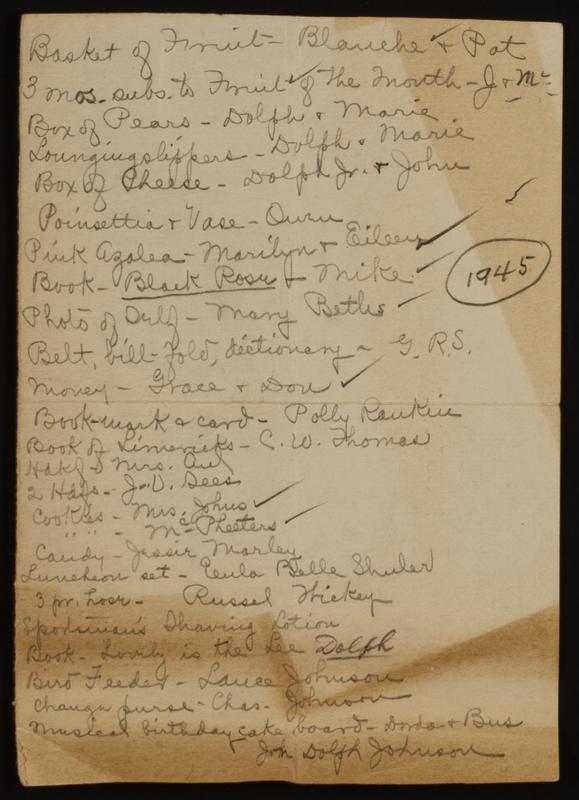 Basket of Fruit - Blanche & Pat
3 mos. subs. to Fruit of the Month - J & Mc
Box of Pears - Dolph & Marie
Lounging slippers - Dolph & Marie
Box of Cheese - Dolph Jr. & John
Poinsettia & Vase - Owen
Pink Azalea - Marilyn & Eileen
Book - Black Rose - Mike
1945
Photo of - Mary Beths
Belt, bill-fold, dictionary - G.R.S.
Money - Grace & Don
Book-mark & card - Polly Rankin
Book of Limericks - C. W. Thomas
Mrs.
2 - J.D. Sees
Cookies - Mrs. Johns
" " - McPheeters
Candy - Jessie Marley
Luncheon set - Eula Belle Shuler
3 pr. hose - Russel Hickey
Sportsman's Shaving Lotion
Book - Lovely is the Lee Dolph
Bird Feeder - Lance Johnson
Change purse - Chas. Johnson
Musical birthday cake board - Dorda & Bus
Dolph Johnson